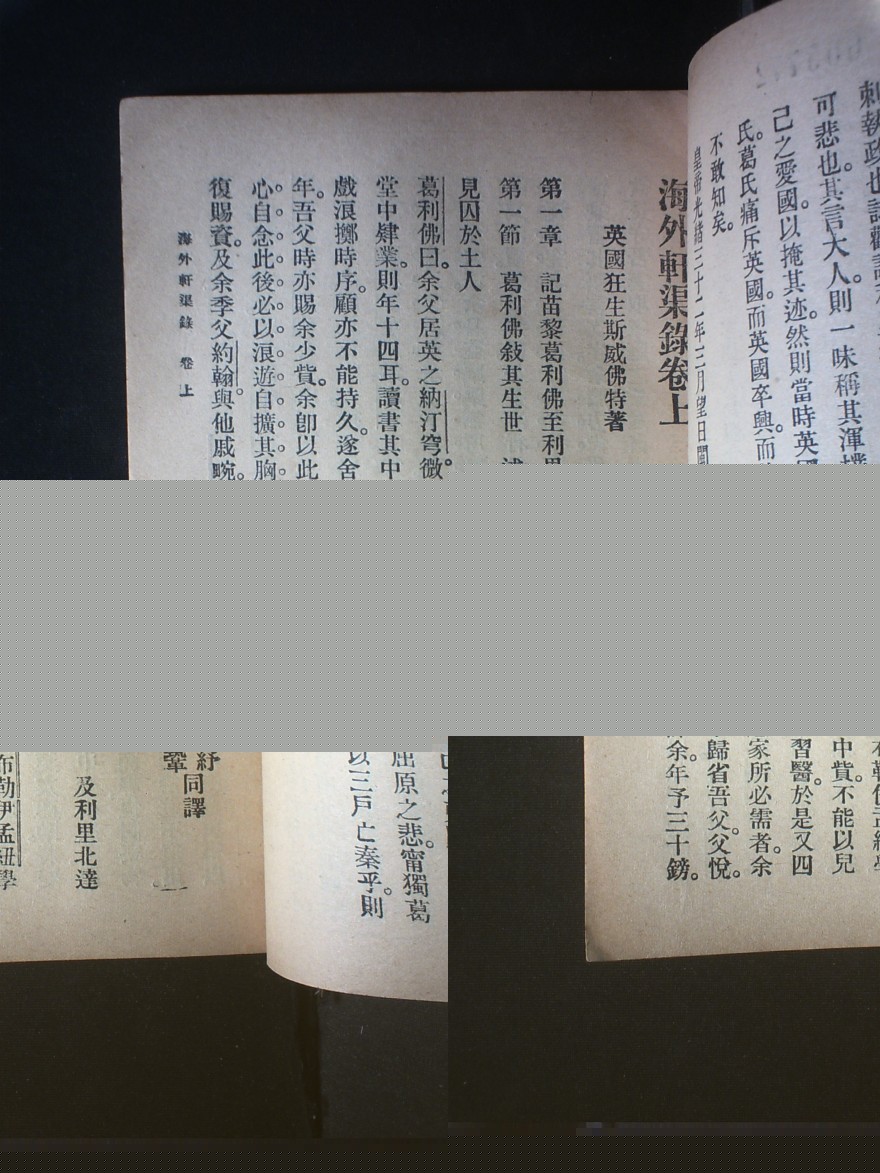 刺執政也試觀
可悲也。其言大人則一味稱其渾樸
己之愛國。以掩其迹。然則當時英國
氏。葛氏痛斥英國。而英國卒興。而
不敢知矣。
皇帝光緒三十二年三月望日閩
海外軒渠錄卷上
英國狂生斯威佛特著
第一章　記苗黎葛利佛至利
第一節　葛利佛敍其生世
見囚於土人
葛利佛曰。余父居英之納汀穹微。
堂中肄業。則年十四耳。讀書其中
戲浪擲時序。顧亦不能持久。遂舍
年。吾父時亦賜余少貲。余卽以此
心自念此後必以浪遊自擴其胸
復賜資。及余季父約翰與他戚畹。
海外軒渠錄　卷上
屈原之悲。甯獨葛
以三戶亡秦乎。則
紓同譯
鞏
及利里北達
布勒伊孟紐學
中貲。不能以兒
習醫。於是又四
家所必需者。余
歸省吾父。父悅。
余。年予三十鎊。